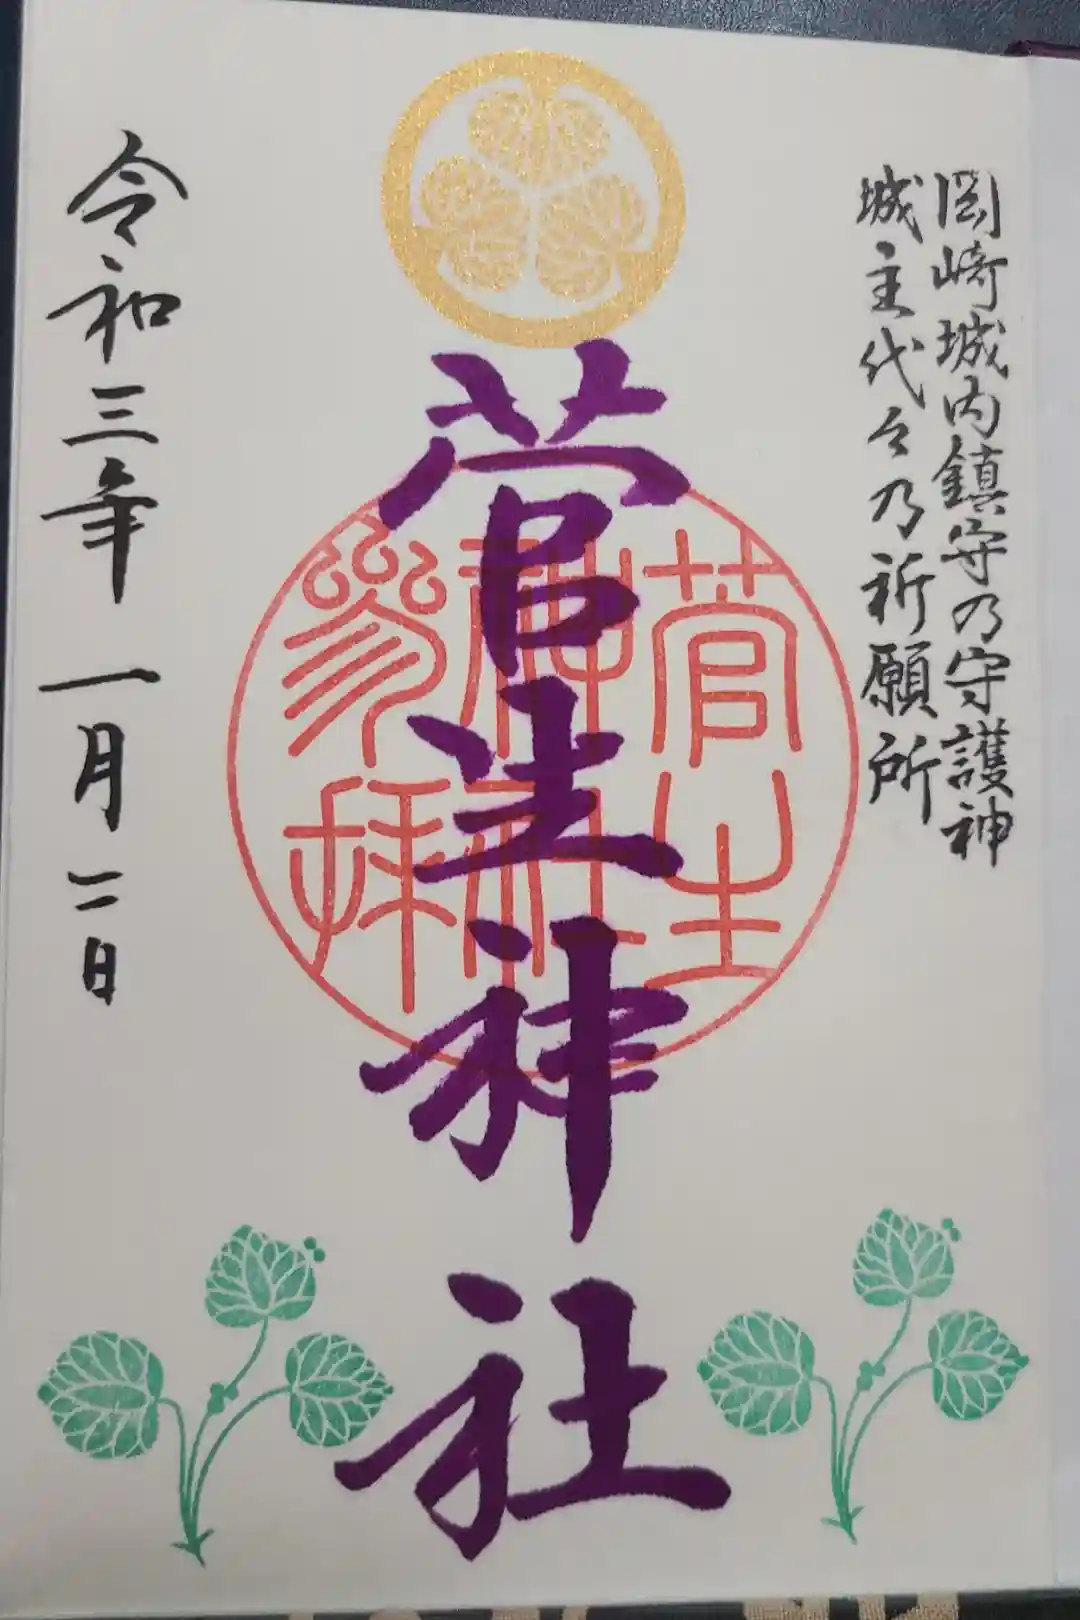 岡崎城内鎮守乃守護神
城主代々乃祈願所
菅生神社
菅生
神社
参拝
令和三年 一月二日